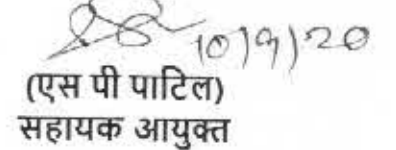 10/9/20
(एस पी पाटिल)
सहायक आयुक्त